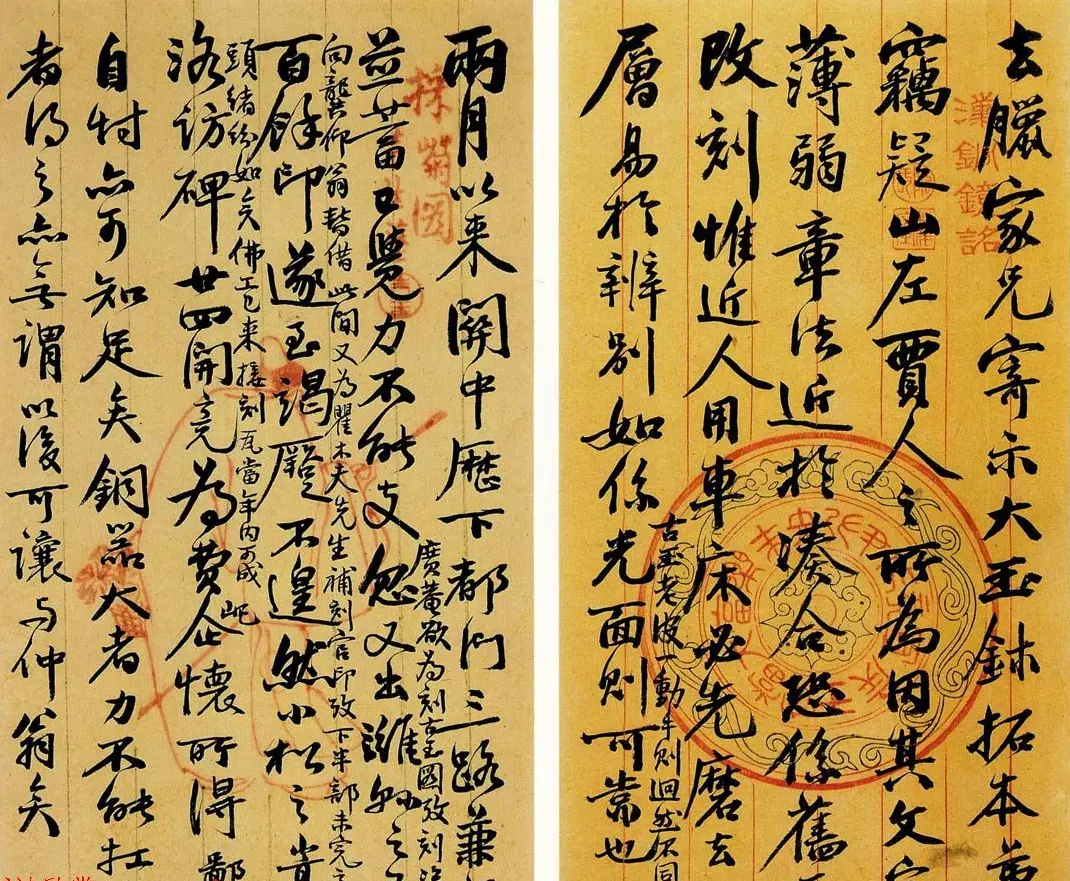 去臘家兄寄示大玉鉢拓本弟
竊疑山左賈人之所為因其文字
薄弱章法近於湊合恐係舊
改刻惟近人用車床必先磨去
古玉老皮一動手則迥然不同
層易於辨别如係光面則可棠也
漢銅鏡銘
兩月以來關中歷下都門三路兼
廣菴欲為刻古玉圖攷刻
並蓄已覺力不能支忽又出濰縣之
向龔仰翁暫借此間又為瞿木夫先生補刻官印攷下半部未完
百餘印遂至竭蹷不遑然小松之嵩
頭緒紛如矣佛工已來接刻瓦當年内可成
洛訪碑廿四開竟為費屺懷所得鄙
自忖亦可知足矣銅器大者力不能扛
者得之亦無謂以後可讓與仲翁矣
採菊図